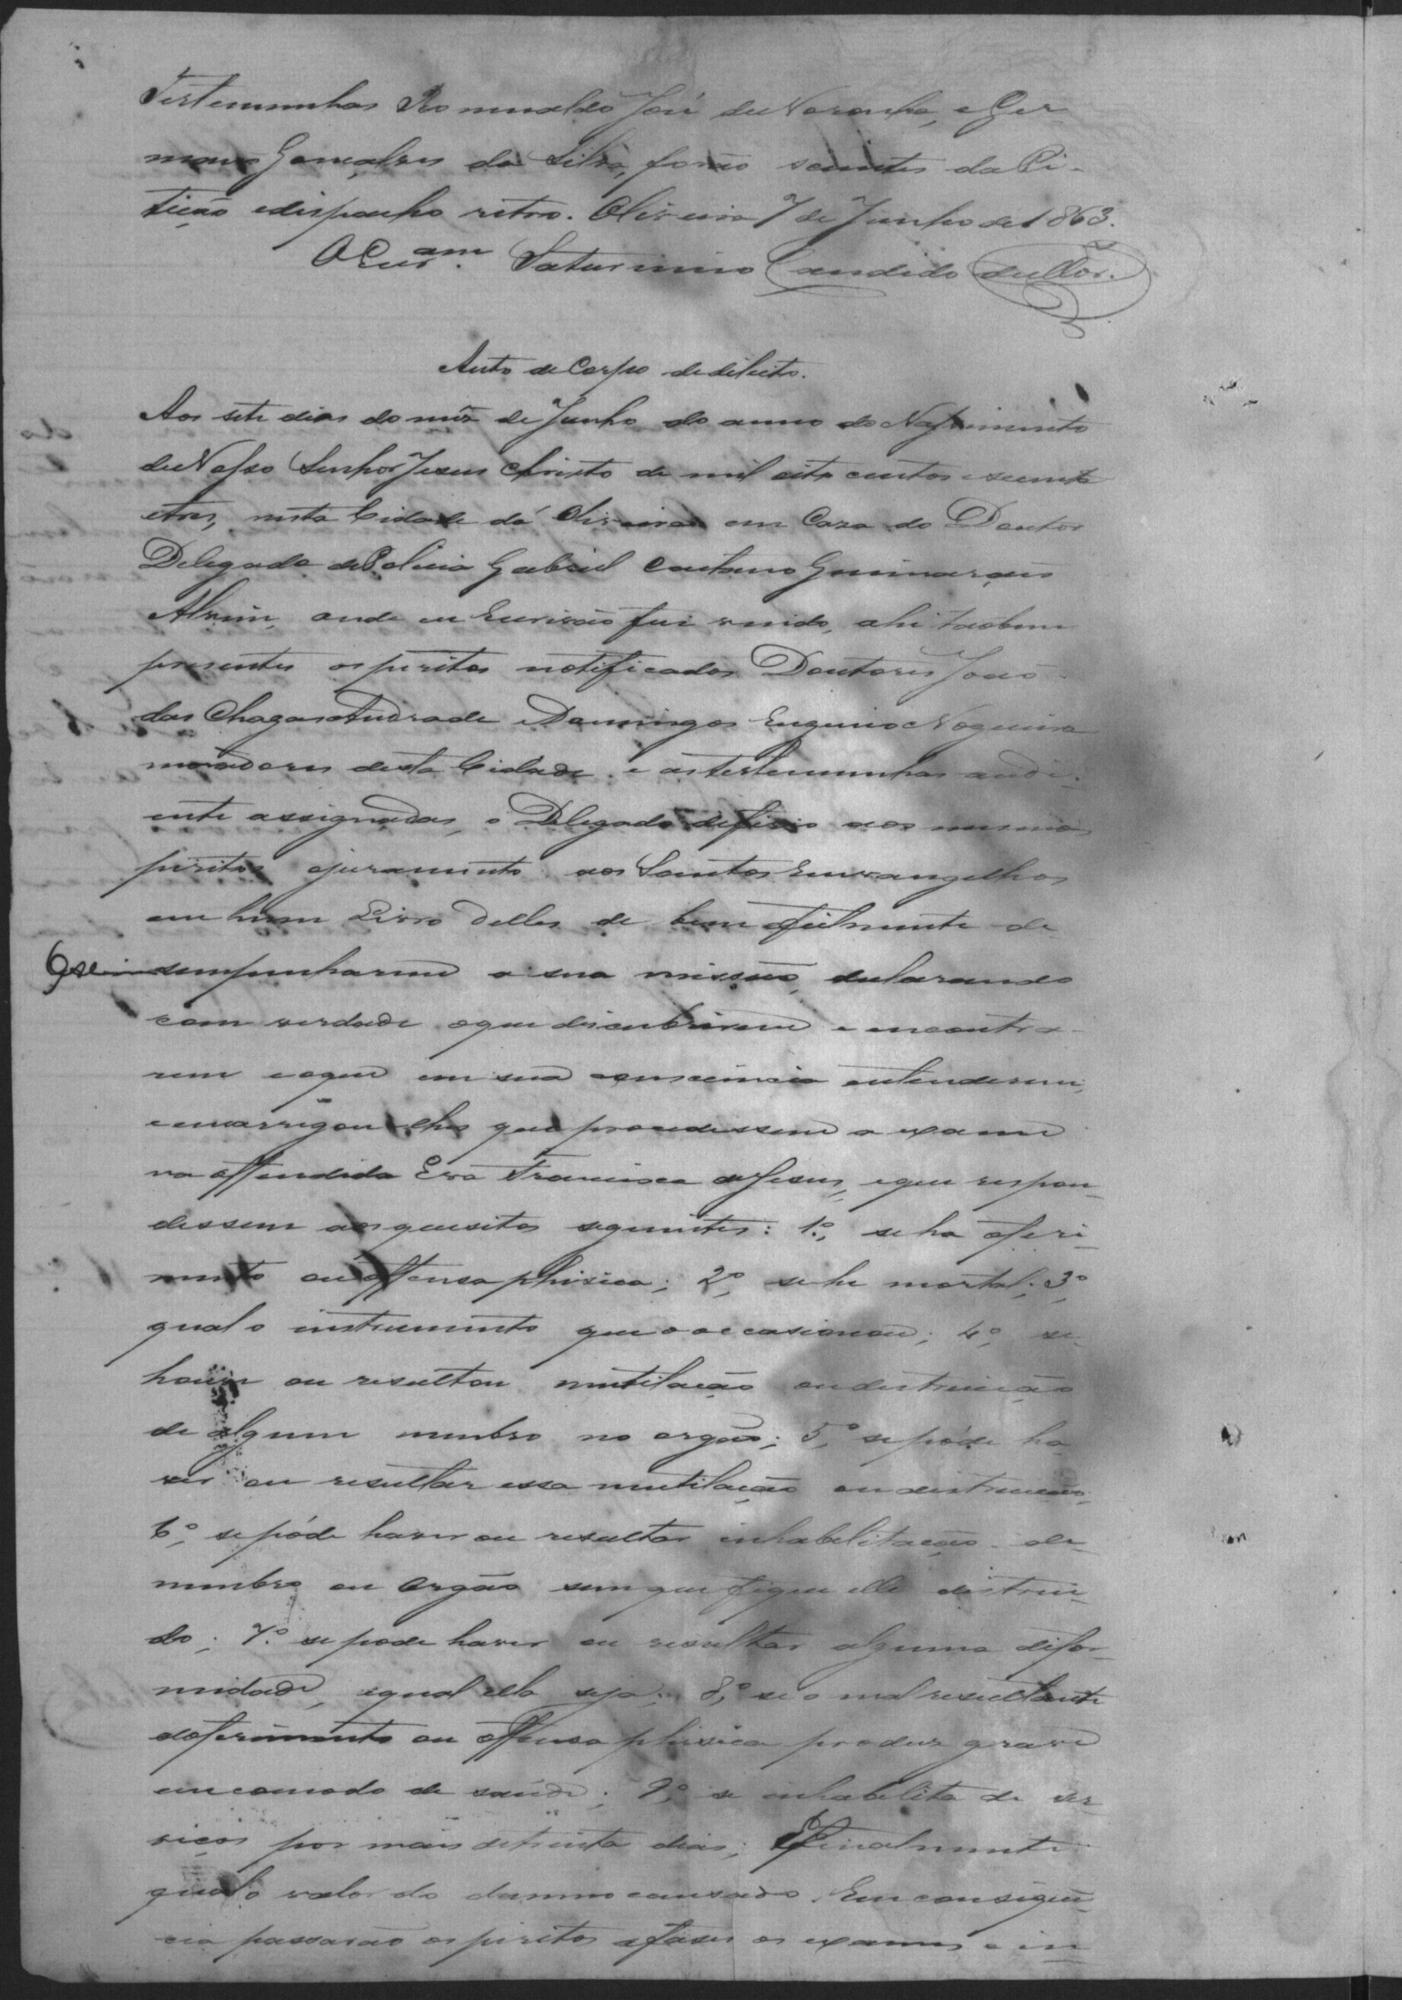 Testemunhas Romualdo José de Noronha, e Ger-
mano Gonçalves da Silva, forão scientes da Pi-
tição e dispacho retro. Oliveira 7 de Junho de 1863.
O Escr.am Saturnino Candido
Auto de Corpo de dilicto.
Aos sete dias do mez de Junho do anno do Nascimento
de Nosso Senhor Jesus Christo de mil oito centos e secenta
e tres, nesta Cidade da Oliveira em Caza do Doutor
Delegado de Policia Gabriel Caetano Guimarães
Alvim, onde eu Escrivão fui vindo, ahi tãobem
presentes os peritos notificados Doutores João
das Chagas Andrade e Domingos Eugenio Nogueira
moradores desta Cidade, e as testemunhas audi-
ente assignadas, o Delegado defirio aos mesmos
peritos o juramento aos Santos Envangelhos
em hum Livro delles de bem e fielmente de-
sempenharem a sua missão, declarando
com verdade o que discubrirem e encontra-
rem e o que em sua consciencia entenderem,
e encarregou-lhes que procedessem a exame
na offendida Eva Francisca de Jesus, e que respon-
dessem aos quesitos seguintes: 1.º, se ha feri-
mento ou offensa phisica; 2.º, se he mortal; 3.º
qual o instrumento que o occasionou; 4.º, se
houve ou resultou mutilação ou distruição
de algum membro no orgão; 5.º, se póde ha-
ver ou resultar essa mutilação ou distruição,
6.º, se póde haver ou resultar inhabilitação de
membro ou orgão sem que fique elle distrui-
do; 7.º se pode haver ou resultar alguma difor-
midade, e qual ella seja; 8.º se o mal resultante
do ferimento ou offensa phisica produz grave
encomodo de saude; 9.º, se inhabilita de ser-
viços por mais de trinta dias; E finalmente
qual o valor do damno causado. Em consequen-
cia passarão os peritos a fazer os exames e in-